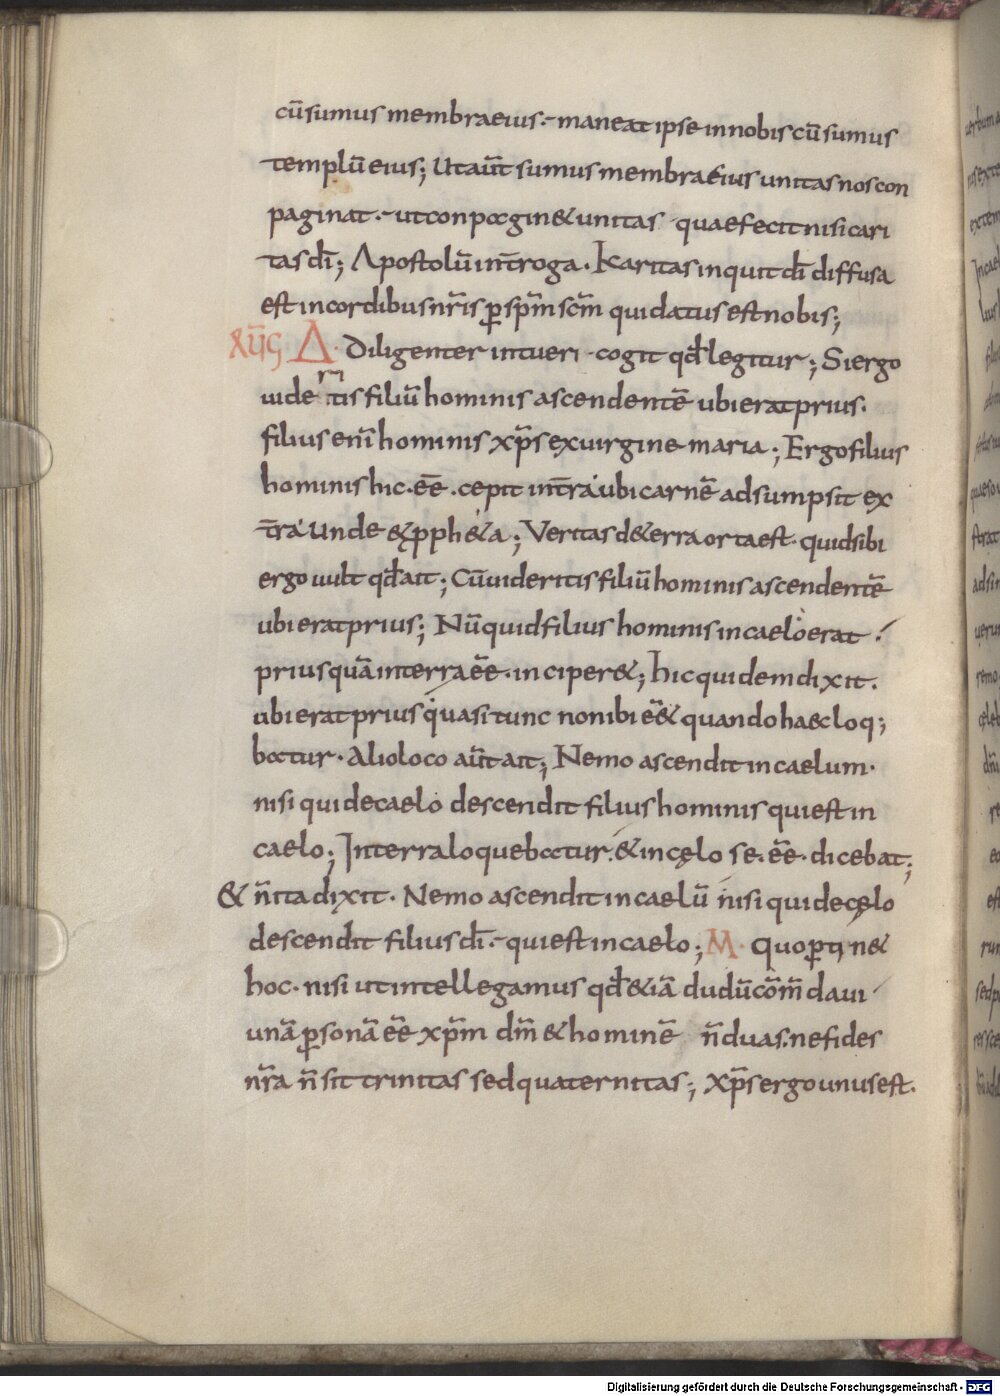 cū sumus membra eius · maneat ipse in nobis cū sumus
templū eius; Ut aūt sumus membra eius unitas nos con
paginat · ut conpagin& unitas quae fecit nisi cari
tas dī; Apostolū int̄roga · Karitas inquit dī diffusa
est in cordibus nr̄is p̱ sp̄m sc̄m qui datus est nobis;
Δ · Diligenter intueri cogit qđ legitur; Si ergo
uideritis filiū hominis ascendentē ubi erat prius ·
filius enī hominis xp̄s ex uirgine maria; Ergo filius
hominis hic · eē · cepit in t̄ra ubi carnē adsumpsit ex
t̄ra Unde & pph&a; Veritas d& erra orta est · quid sibi
ergo uult qđ ait; Cū uideritis filiū hominis ascendentē
ubi erat prius; Nūquid filius hominis in caelo erat ·
prius quā in terra eē · inciper&; hic quidem dixit ·
ubi erat prius quasi tunc non ibi eē& quando haec loq;
batur · Alio loco aūt ait; Nemo ascendit in caelum ·
nisi qui de caelo descendit filius hominis qui est in
caelo; In terra loquebatur · & in cęlo se · eē · dicebat;
& n̄ ita dixit · Nemo ascendit in caelū nisi qui de cęlo
descendit filius dī · qui est in caelo; M · Quo p̱tin&
hoc · nisi ut intellegamus qđ & iā dudū cōm̄daui
unā p̱sonā eē xp̄m dm̄ & hominē n̄ duas · ne fides
nr̄a n̄ sit trinitas sed quaternitas; Xp̄s ergo unus est ·
Digitalisierung gefördert durch die Deutsche Forschungsgemeinschaft - DFG